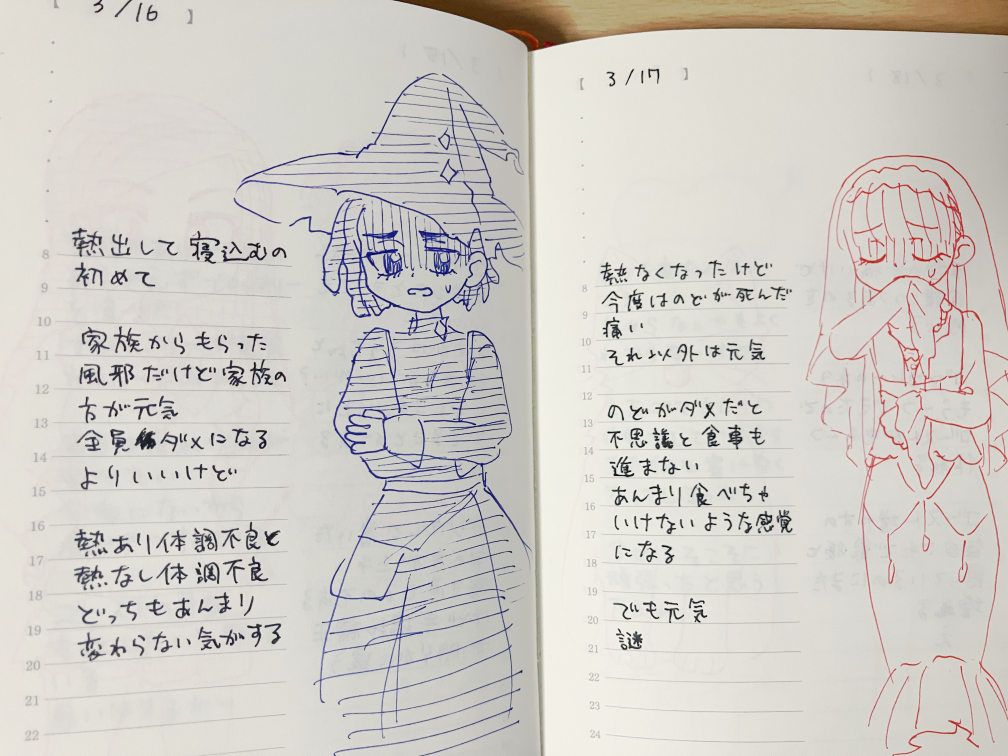 【 3/16 】
熱出して寝込むの
初めて
家族からもらった
風邪だけど家族の
方が元気
全員ダメになる
よりいいけど
熱あり体調不良と
熱なし体調不良
どっちもあんまり
変わらない気がする
8
9
10
11
12
13
14
15
16
17
18
19
20
21
22
【 3/17 】
熱なくなったけど
今度はのどが死んだ
痛い
それ以外は元気
のどがダメだと
不思議と食事も
進まない
あんまり食べちゃ
いけないような感覚
になる
でも元気
謎
8
9
10
11
12
13
14
15
16
17
18
19
20
21
22
23
24